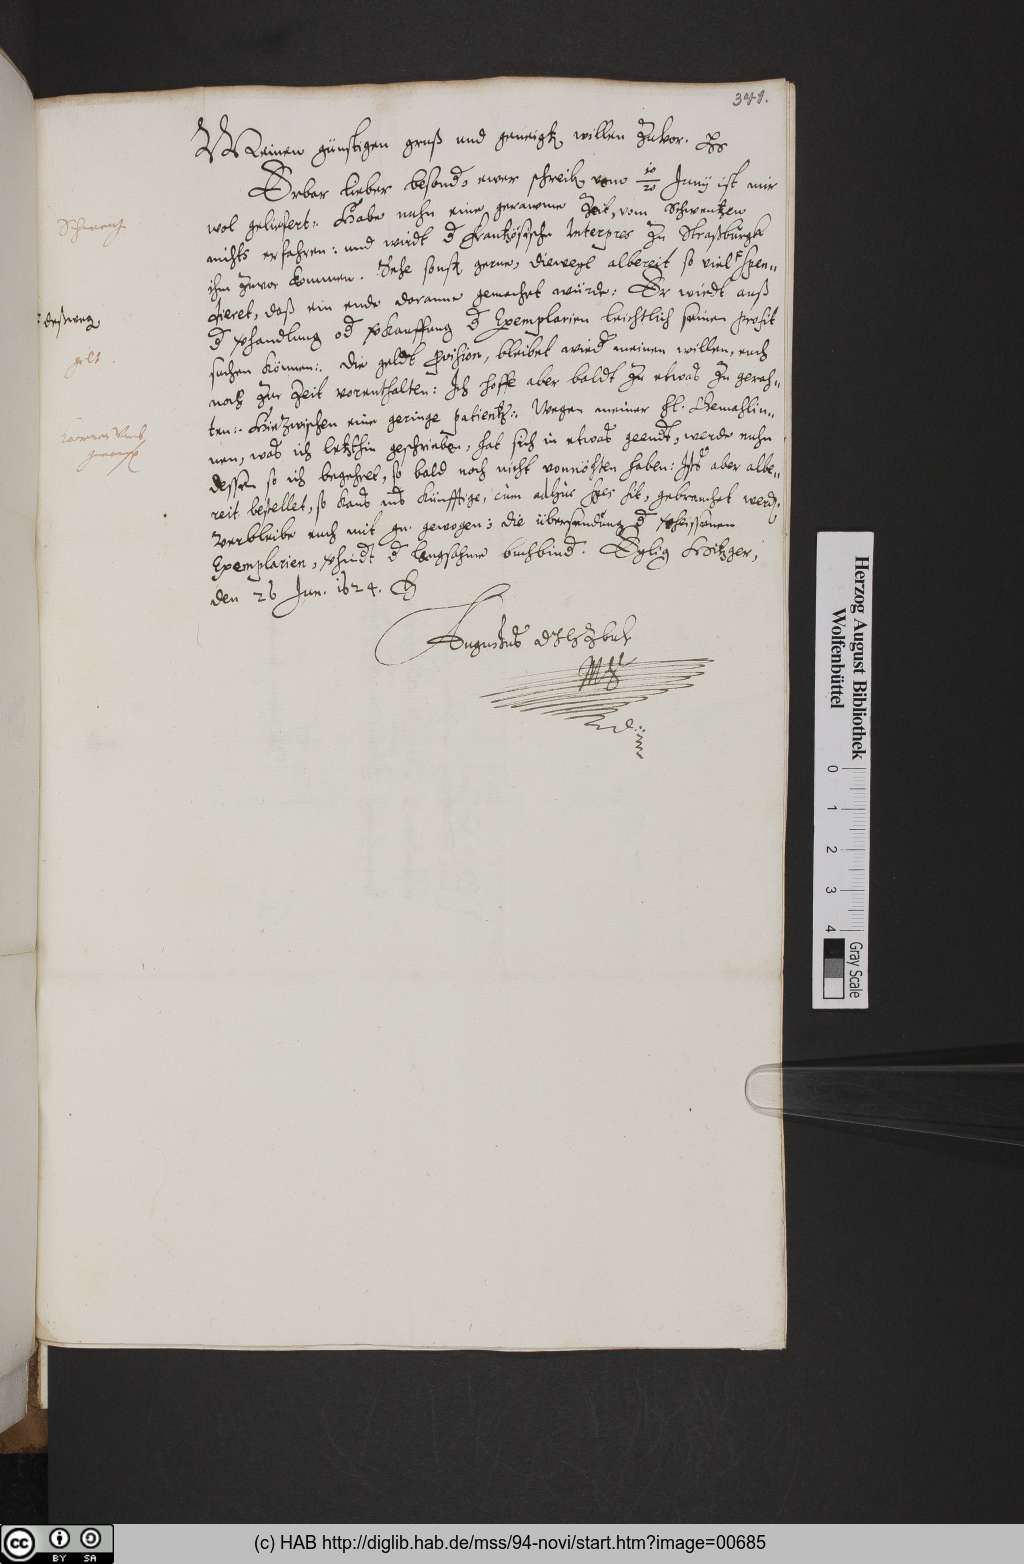 341.
Meinen günstigen gruß und geneigtē willen zuvor.
Erbar lieber besondr, ewer schreibē vom 10/20 Junij ist mir
wol geliefert: Habe nuhn eine geraume Zeit, vom Schwentzen
nichts erfahren: und wirdt d Frantzösische Interpres zu Straßburgk
ihm zuvor kommen. Sehe sonst gerne, dieweyl albereit so viel spen=
dieret, daß ein ende daranne gemachet würde: Er wirdt auß
d vhandlung od vkauffung d Exemplarien leichtlich seinen profit
suchen können: die geldt provision, bleibet wied meinen willen, auch
noch zur Zeit vorenthalten: Ich hoffe aber baldt zu etwas zu gerah=
ten: Hiezwischen eine geringe patientz: Wegen meiner hl. Gemahlin=
nen, was ich letzthin geschrieben, hat sich in etwas geendt, werde nuhn
dessen so ich begehret, so bald noch nicht vonnöhten haben: Ists aber albe=
reit bestellet, so kans ins künfftige, cum adhuc spes sit, gebrauchet werdē.
Verbleibe euch mit gn. gewogen: die übersendung d vheissenen
Exemplarien, vhindt d langsahme buchbind. Eylig Hitzger,
den 26 Jun. 1624.
Augustus
Schwentz
deßweg
gelt.
Herzog August Bibliothek
Wolfenbüttel
0 1 2 3 4
Gray Scale
cc BY SA
(c) HAB http://diglib.hab.de/mss/94-novi/start.htm?image=00685